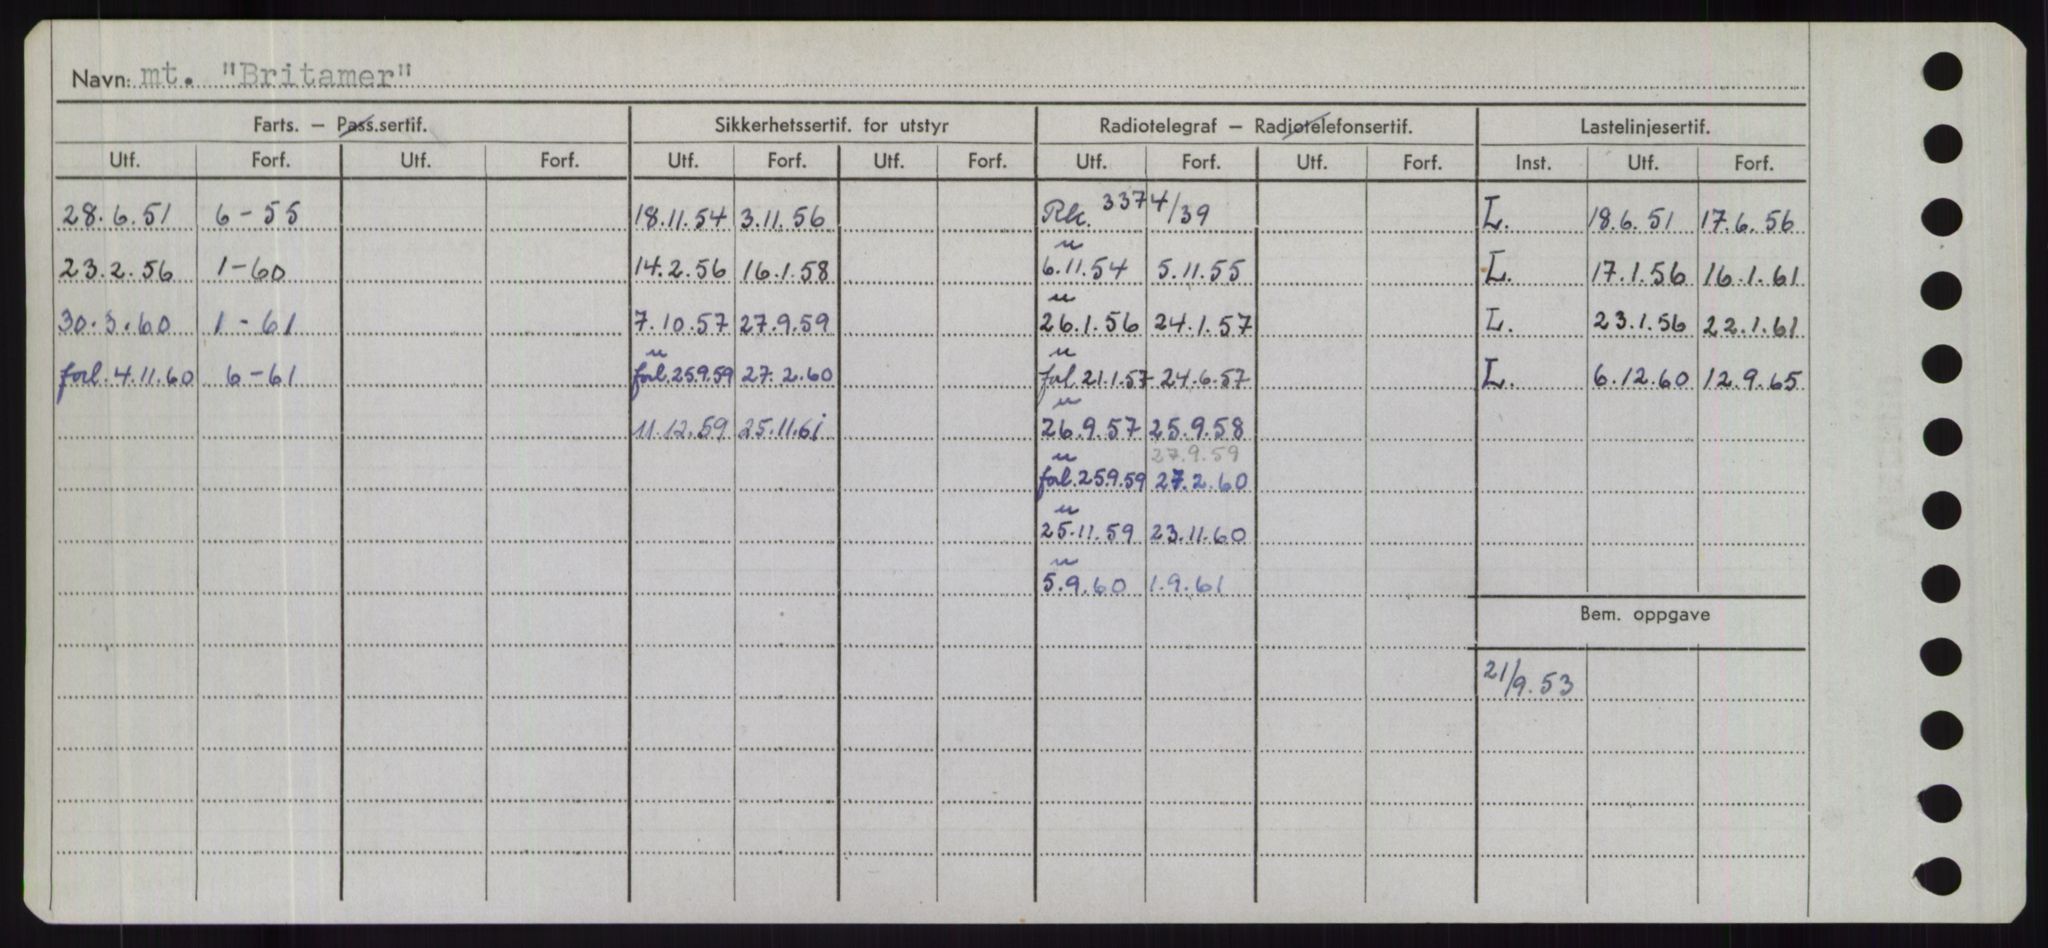 Navn: mt. "Britamer"
Farts. — Pass.sertif. Sikkerhetssertif. for utstyr Radiotelegraf — Radiotelefonsertif. Lastelinjesertif.
Utf. Forf. Utf. Forf. Utf. Forf. Utf. Forf. Utf. Forf. Utf. Forf. Inst. Utf. Forf.
28.6.51 6-55 18.11.54 3.11.56 Rk. 3374/39 L. 18.6.51 17.6.56
23.2.56 1-60 14.2.56 16.1.58 6.11.54 5.11.55 L. 17.1.56 16.1.61
30.3.60 1-61 7.10.57 27.9.59 26.1.56 24.1.57 L. 23.1.56 22.1.61
forl. 4.11.60 6-61 forl. 25.9.59 27.2.60 forl. 21.1.57 24.6.57 L. 6.12.60 12.9.65
11.12.59 25.11.61 26.9.57 25.9.58
27.9.59
forl. 25.9.59 27.2.60
25.11.59 23.11.60
5.9.60 1.9.61
Bem. oppgave
21/9.53